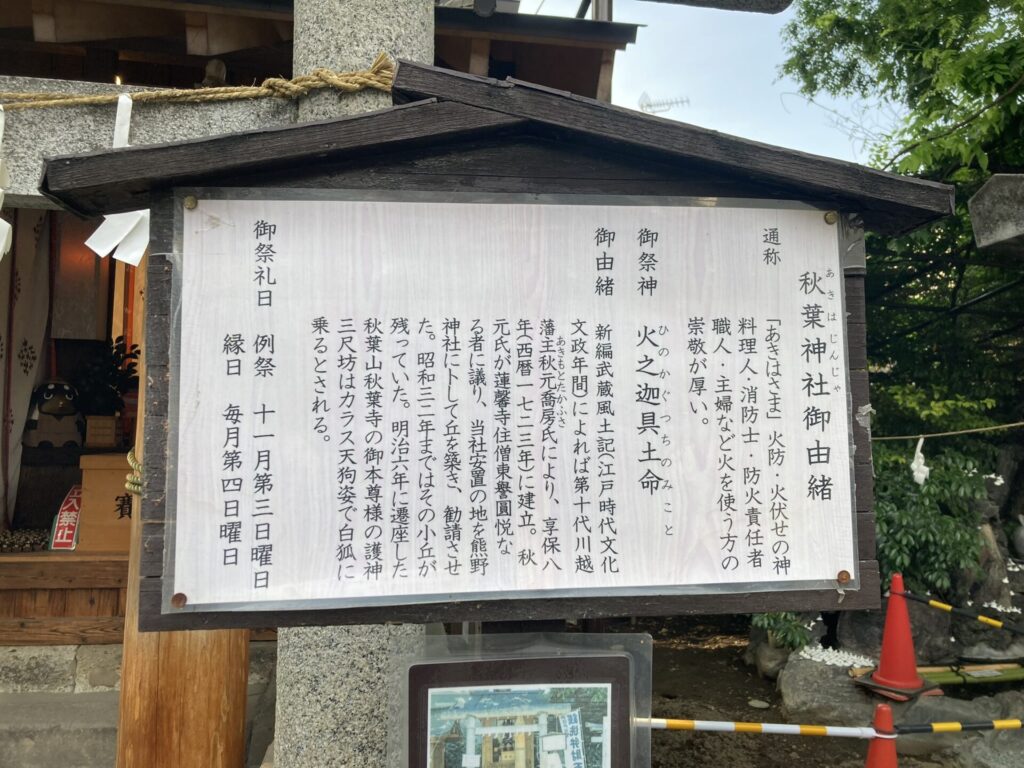 秋葉神社御由緒
あきはじんじゃ
通称
「あきはさま」火防・火伏せの神
料理人・消防士・防火責任者
職人・主婦など火を使う方の
崇敬が厚い。
御祭神
火之迦具土命
ひのかぐつちのみこと
御由緒
新編武蔵風土記(江戸時代文化
文政年間)によれば第十代川越
藩主秋元喬房氏により、享保八
あきもとたかふさ
年(西暦一七二三年)に建立。秋
元氏が蓮馨寺住僧東譽圓悦な
る者に議り、当社安置の地を熊野
神社に卜して丘を築き、勧請させ
た。昭和三二年まではその小丘が
残っていた。明治六年に遷座した
秋葉山秋葉寺の御本尊様の護神
三尺坊はカラス天狗姿で白狐に
乗るとされる。
御祭礼日
例祭 十一月第三日曜日
縁日 毎月第四日曜日
立入禁止
賽